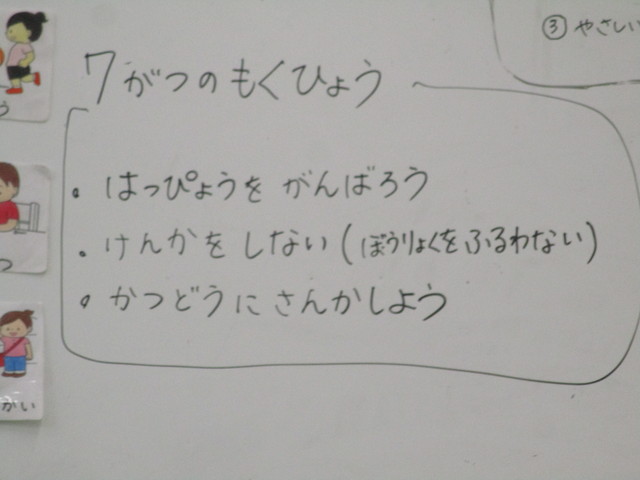 ③ やさしい
7がつのもくひょう
・はっぴょうを がんばろう
・けんかを しない(ぼうりょくをふるわない)
・かつどうに さんかしよう
う
つ
かい